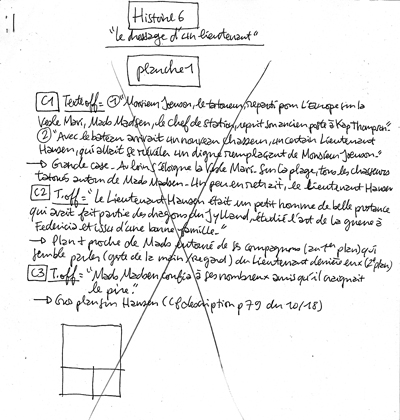 Histoire 6
"Le message d'un lieutenant"
planche 1
C1 Texte off = ① "Monsieur Joenson, le tatoueur, repartit pour l'Europe sur la
Vesle Mari, Mads Madsen, le chef de station, reprit son ancien poste à Kap Thompson."
② "Avec le bateau arrivait un nouveau chasseur, un certain Lieutenant
Hansen, qui allait se révéler un digne remplaçant de Monsieur Joenson."
→ Grande case. Au loin s'éloigne la Vesle Mari. Sur la plage, tous les chasseurs
tatoués autour de Mads Madsen. Un peu en retrait, le lieutenant Hansen
C2 T. off = "Le Lieutenant Hansen était un petit homme de belle prestance
qui avait fait partie des dragons du Jylland, étudié l'art de la guerre à
Federicia et issu d'une bonne famille."
→ Plan + proche de Mads entouré de ses compagnons (au 1er plan) qui
semble parler (geste de la main/regard) du Lieutenant derrière eux (2e plan)
C3 T. off = "Mads Madsen confia à ses nombreux amis qu'il craignait
le pire."
→ Gros plan sur Hansen (Cf description p79 du 10/18)